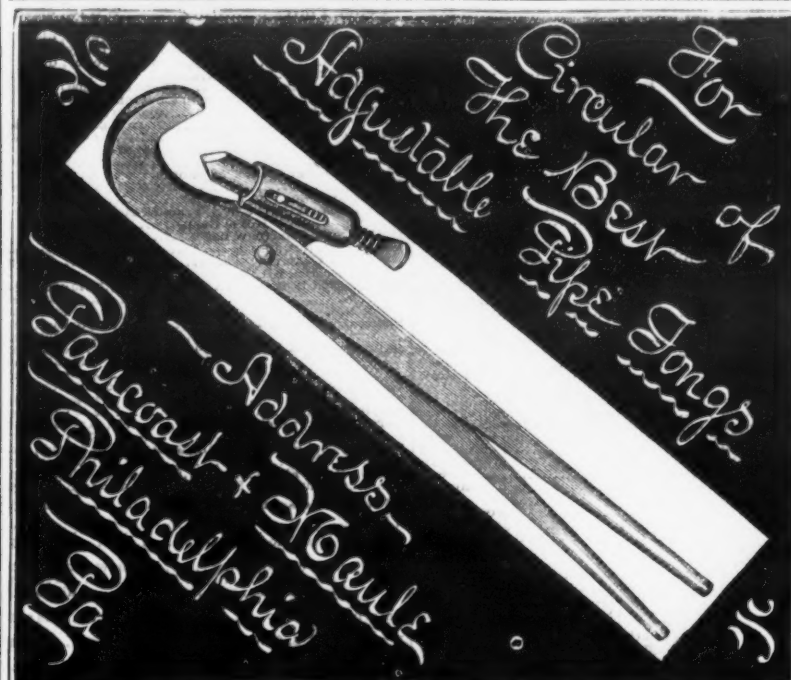 For
Circular of
The Best
Adjustable Pipe Tongs
-Address-
Pancoast & Maule
Philadelphia
Pa